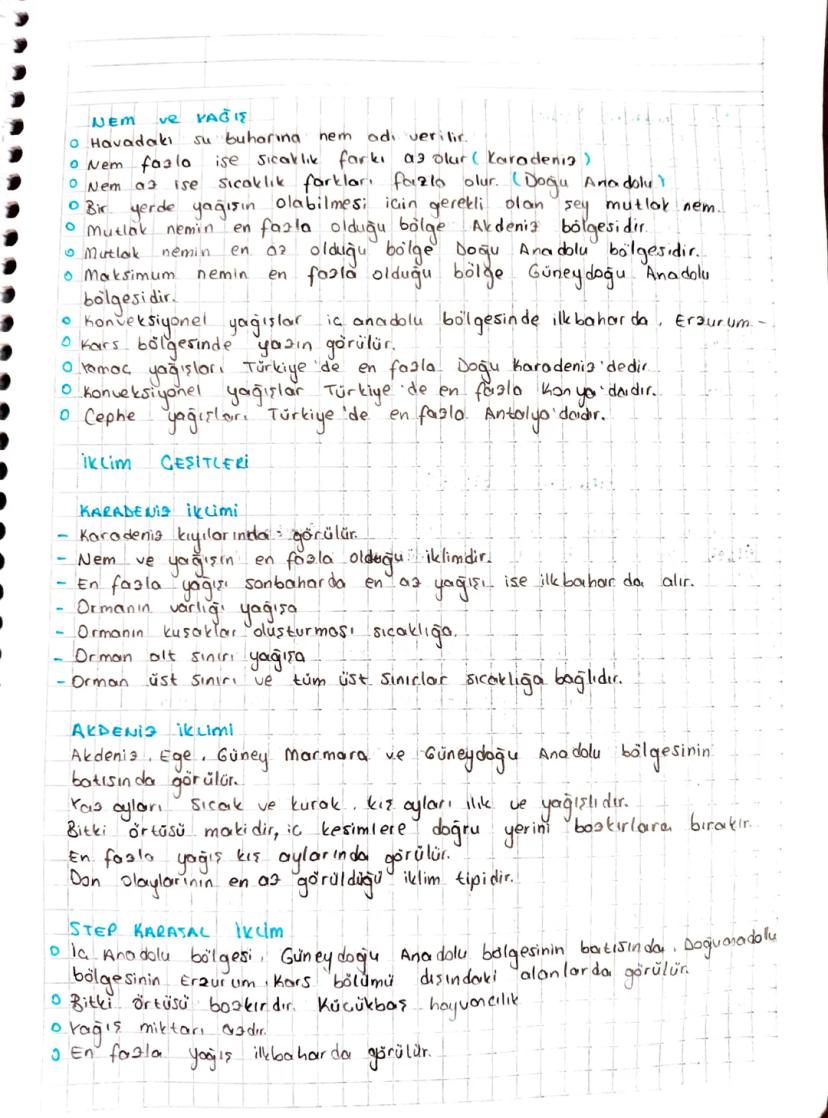 NEM ve YAĞIŞ
Havadaki su buharına nem adı verilir.
Nem fazla ise sıcaklık farkı az olur (Karadeniz)
Nem az ise sıcaklık farkları fazla olur. (Doğu Anadolu)
Bir yerde yağışın olabilmesi icin gerekli olan sey mutlak nem.
Mutlak nemin en fazla olduğu bölge Akdeniz bölgesidir.
Mutlak nemin en az olduğu bölge Doğu Anadolu bölgesidir.
Maksimum nemin en fazla olduğu bölge Güneydoğu Anadolu
bölgesidir.
Konveksiyonel yağışlar ic anadolu bölgesinde ilkbaharda, Erzurum-
Kars bölgesinde yazın görülür.
Yamac yağışları Türkiye'de en fazla Doğu Karadeniz'dedir
Konveksiyonel yağışlar Türkiye'de en fazla Konya'dadır.
Cephe yağışları Türkiye'de en fazla Antalya'dadır.
İKLİM CEŞİTLERİ
KARADENİZ İKLİMİ
- Karadeniz kıyılarında görülür.
- Nem ve yağışın en fazla olduğu iklimdir.
- En fazla yağışı sonbaharda en az yağışı ise ilkbaharda alır.
- Ormanın varlığı yağışa
- Ormanın kuşaklar oluşturması sıcaklığa.
- Orman alt sınırı yağışa
- Orman üst sınırı ve tüm üst sınırlar sıcaklığa bağlıdır.
AKDENİZ İKLİMİ
Akdeniz, Ege, Güney Marmara ve Güneydoğu Anadolu bölgesinin
batısında görülür.
Yaz ayları sıcak ve kurak, kış ayları ılık ve yağışlıdır.
Bitki örtüsü makidir, ic kesimlere doğru yerini bozkırlara bırakır.
En fazla yağış kış aylarında görülür.
Don olaylarının en az görüldüğü iklim tipidir.
STEP KARASAL İKLİM
İc Anadolu bölgesi, Güneydoğu Anadolu bölgesinin batısında, Doğuanadolu
bölgesinin Erzurum, Kars bölümü dısındaki alanlarda görülür.
Bitki örtüsü bozkırdır. Kücükbaş hayvancılık
Yağış miktarı azdır.
En fazla yağış ilkbaharda görülür.